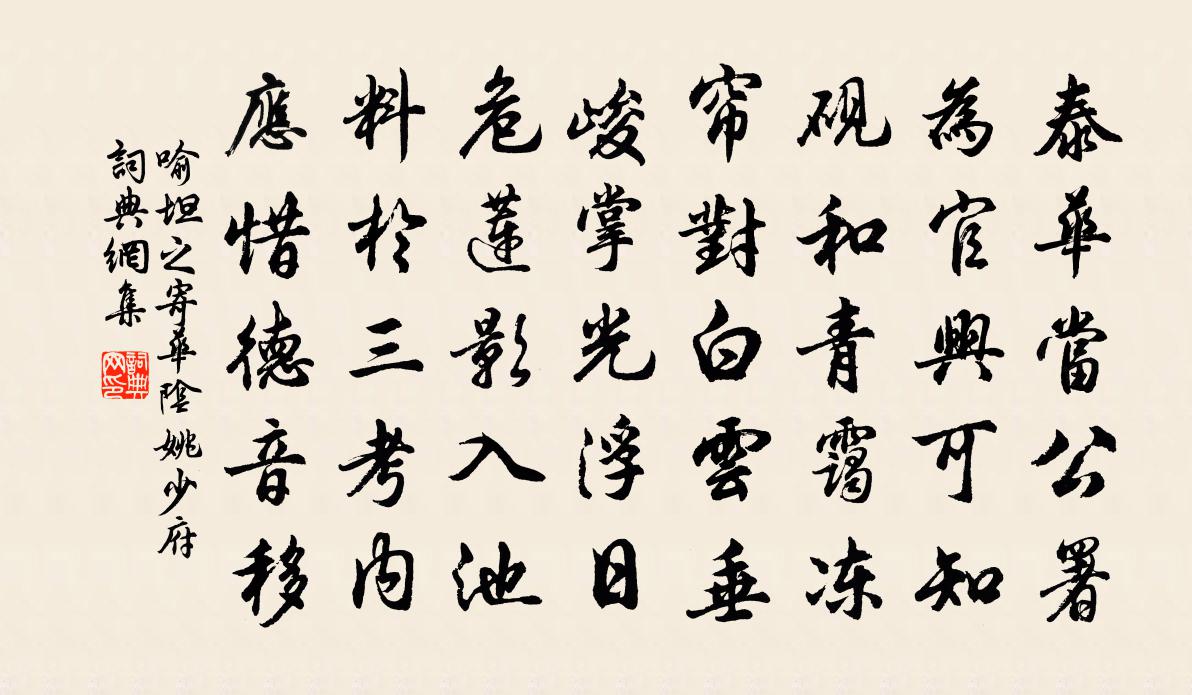 泰華當公署
為官興可知
硯和青靄凍
帘對白雲垂
峻掌光浮日
危蓮影入池
料於三考內
應惜德音移
喻坦之寄華陰姚少府
詞典網集
詞典
网印